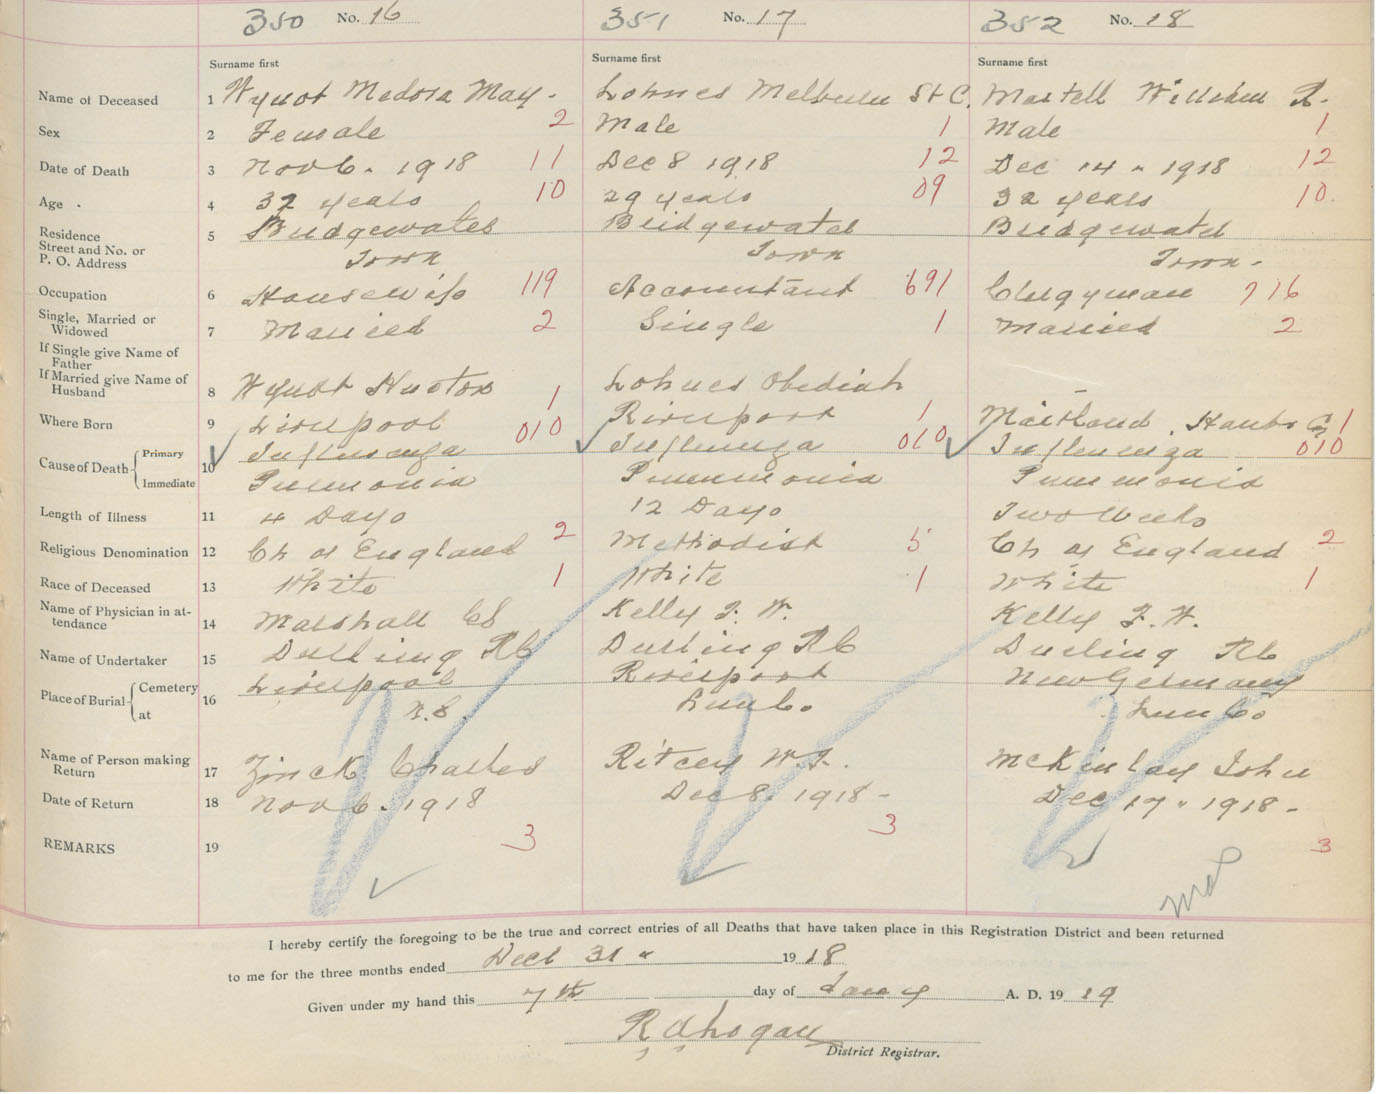 350 No. 16 351 No. 17 352 No. 18
Surname first Surname first Surname first
Name of Deceased 1 Wynot Medora May - Lohnes Melburn St C. Martell William R.
Sex 2 Female 2 Male 1 Male 1
Date of Death 3 Nov 6. 1918 11 Dec 8 1918 12 Dec 14 " 1918 12
Age . 4 32 years 10 29 years 09 32 years 10.
Residence
Street and No. or
P. O. Address 5 Bridgewater Bridgewater Bridgewater
Town Town Town -
Occupation 6 Housewife 119 Accountant 691 Clergyman 716
Single, Married or
Widowed 7 Married 2 Single 1 Married 2
If Single give Name of
Father
If Married give Name of
Husband 8 Wynot Huston 1 Lohnes Obediah -
Where Born 9 Liverpool Riverport 1 Maitland, Hants Co 1
Cause of Death Primary 10 Influenza 010 Influenza 010 Influenza 010
Immediate Pneumonia Pneumonia Pneumonia
Length of Illness 11 4 Days 12 Days Two Weeks
Religious Denomination 12 Ch of England 2 Methodist 5 Ch of England 2
Race of Deceased 13 White 1 White 1 White 1
Name of Physician in at-
tendance 14 Marshall CS Kelly F. W. Kelly F. W.
Name of Undertaker 15 Durling RC Durling RC Durling RC
Place of Burial Cemetery 16 Liverpool Riverport New Germany
at N.S. Lun Co. Lun Co
Name of Person making
Return 17 Zinck Charles Ritcey W. McKinlay John
Date of Return 18 Nov 6. 1918 Dec 8. 1918 - Dec 17 " 1918 -
REMARKS 19 3 3 3
I hereby certify the foregoing to be the true and correct entries of all Deaths that have taken place in this Registration District and been returned
to me for the three months ended Dec 31 " 1918
Given under my hand this 7th day of Jany A. D. 1919
R A Logan
District Registrar.